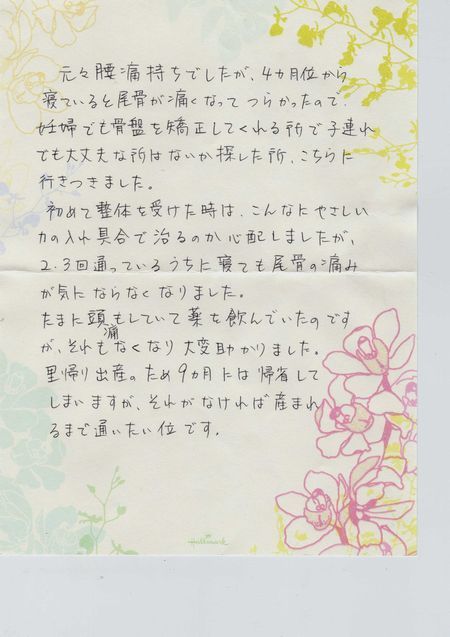 元々腰痛持ちでしたが、4カ月位から
寝ていると尾骨が痛くなってつらかったので、
妊婦でも骨盤を矯正してくれる所で子連れ
でも大丈夫な所はないか探した所、こちらに
行きつきました。
初めて整体を受けた時は、こんなにやさしい
力の入れ具合で治るのか心配しましたが、
2.3回通っているうちに寝ても尾骨の痛み
が気にならなくなりました。
たまに頭痛もしていて薬を飲んでいたのです
が、それもなくなり大変助かりました。
里帰り出産のため9カ月には帰省して
しまいますが、それがなければ産まれ
るまで通いたい位です。
Hallmark